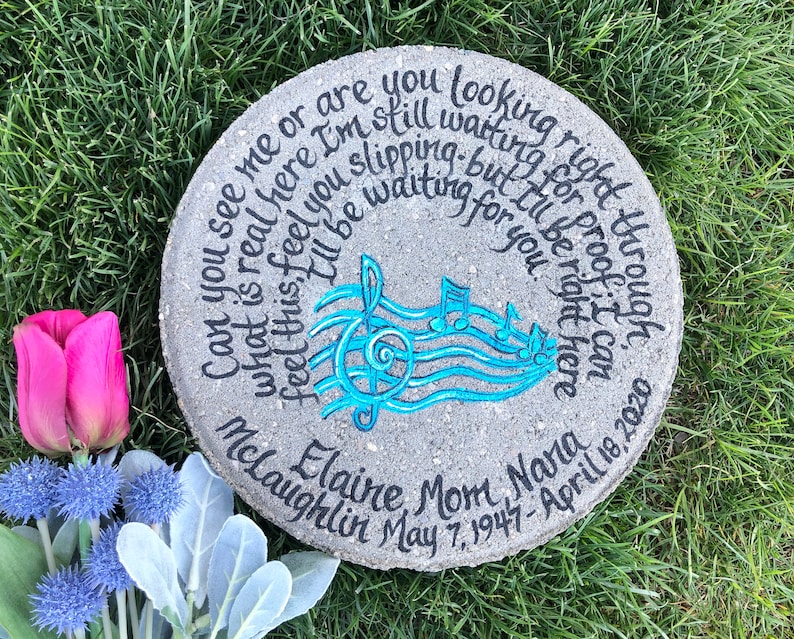 Can you see me or are you looking right through,
what is real here I'm still waiting for proof, I can
feel this, feel you slipping - but I'll be right here
I'll be waiting for you
Elaine, Mom, Nana
McLaughlin May 7, 1947 - April 18, 2020